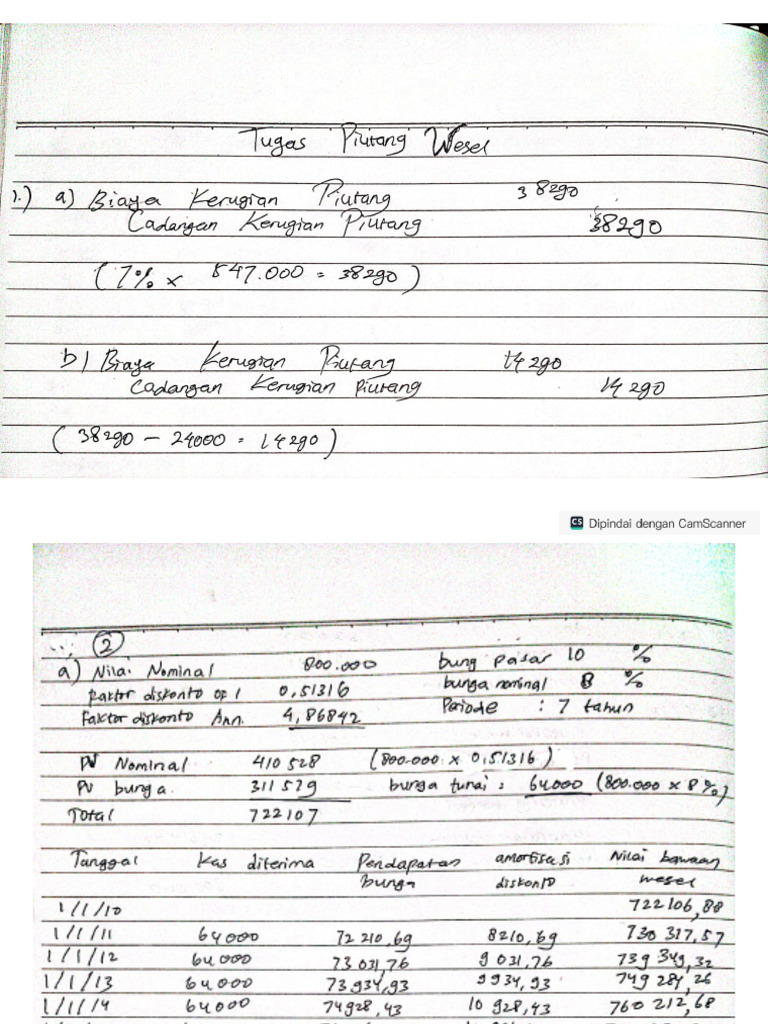 Tugas Piutang Wesel
1.) a) Biaya Kerugian Piutang 38290
Cadangan Kerugian Piutang 38290
(7% x 547.000 = 38290)
b) Biaya Kerugian Piutang 14290
Cadangan Kerugian Piutang 14290
(38290 - 24000 = 14290)
CS Dipindai dengan CamScanner
2
a) Nilai Nominal 800.000 bung pasar 10 %
Faktor diskonto of 1 0,51316 bunga nominal 8 %
Faktor diskonto Ann. 4,86842 Periode : 7 tahun
PV Nominal 410528 (800.000 x 0,51316)
PV bunga. 311579 bunga tunai : 64000 (800.000 x 8%)
Total 722107
Tanggal Kas diterima Pendapatan amortisasi Nilai bawaan
bunga diskonto wesel
1/1/10 722106,88
1/1/11 64000 72210,69 8210,69 730317,57
1/1/12 64000 73031,76 9031,76 739349,32
1/1/13 64000 73934,93 9934,93 749284,26
1/1/14 64000 74928,43 10928,43 760212,68